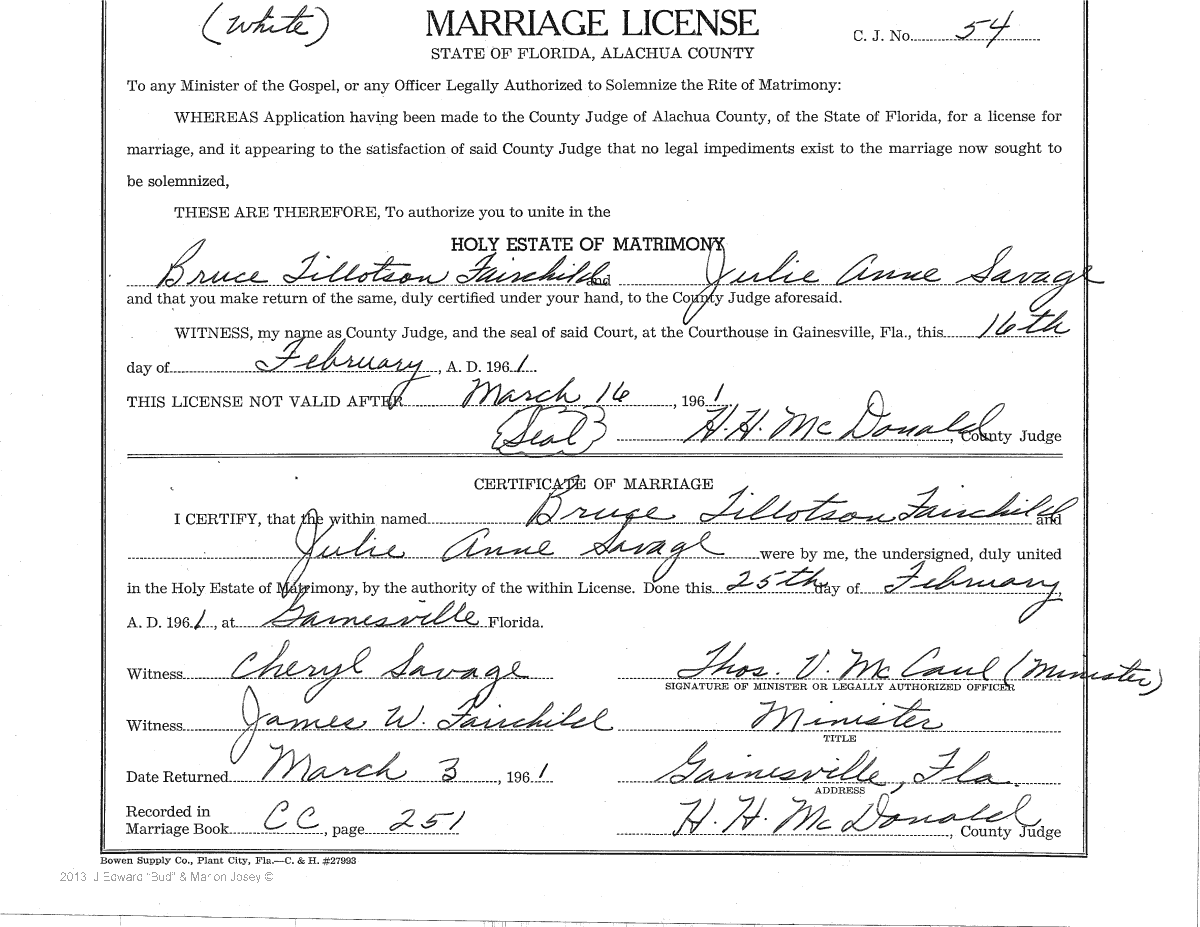 (White) MARRIAGE LICENSE C. J. No. 54
STATE OF FLORIDA, ALACHUA COUNTY
To any Minister of the Gospel, or any Officer Legally Authorized to Solemnize the Rite of Matrimony:
WHEREAS Application having been made to the County Judge of Alachua County, of the State of Florida, for a license for
marriage, and it appearing to the satisfaction of said County Judge that no legal impediments exist to the marriage now sought to
be solemnized,
THESE ARE THEREFORE, To authorize you to unite in the
HOLY ESTATE OF MATRIMONY
Bruce Tillotson Fairchild and Julie Anne Savage
and that you make return of the same, duly certified under your hand, to the County Judge aforesaid.
WITNESS, my name as County Judge, and the seal of said Court, at the Courthouse in Gainesville, Fla., this 16th
day of February, A. D. 1961.
THIS LICENSE NOT VALID AFTER March 16, 1961,
(Seal) H. H. McDonald, County Judge
CERTIFICATE OF MARRIAGE
I CERTIFY, that the within named Bruce Tillotson Fairchild and
Julie Anne Savage were by me, the undersigned, duly united
in the Holy Estate of Matrimony, by the authority of the within License. Done this 25th day of February,
A. D. 1961, at Gainesville Florida.
Witness Cheryl Savage Thos. V. McCaul (Minister)
SIGNATURE OF MINISTER OR LEGALLY AUTHORIZED OFFICER
Witness James W. Fairchild Minister
TITLE
Date Returned March 3, 1961 Gainesville, Fla.
ADDRESS
Recorded in
Marriage Book CC, page 251 H. H. McDonald, County Judge
Bowen Supply Co., Plant City, Fla.—C. & H. #27993
2013 J Edward "Bud" & Marion Josey ©